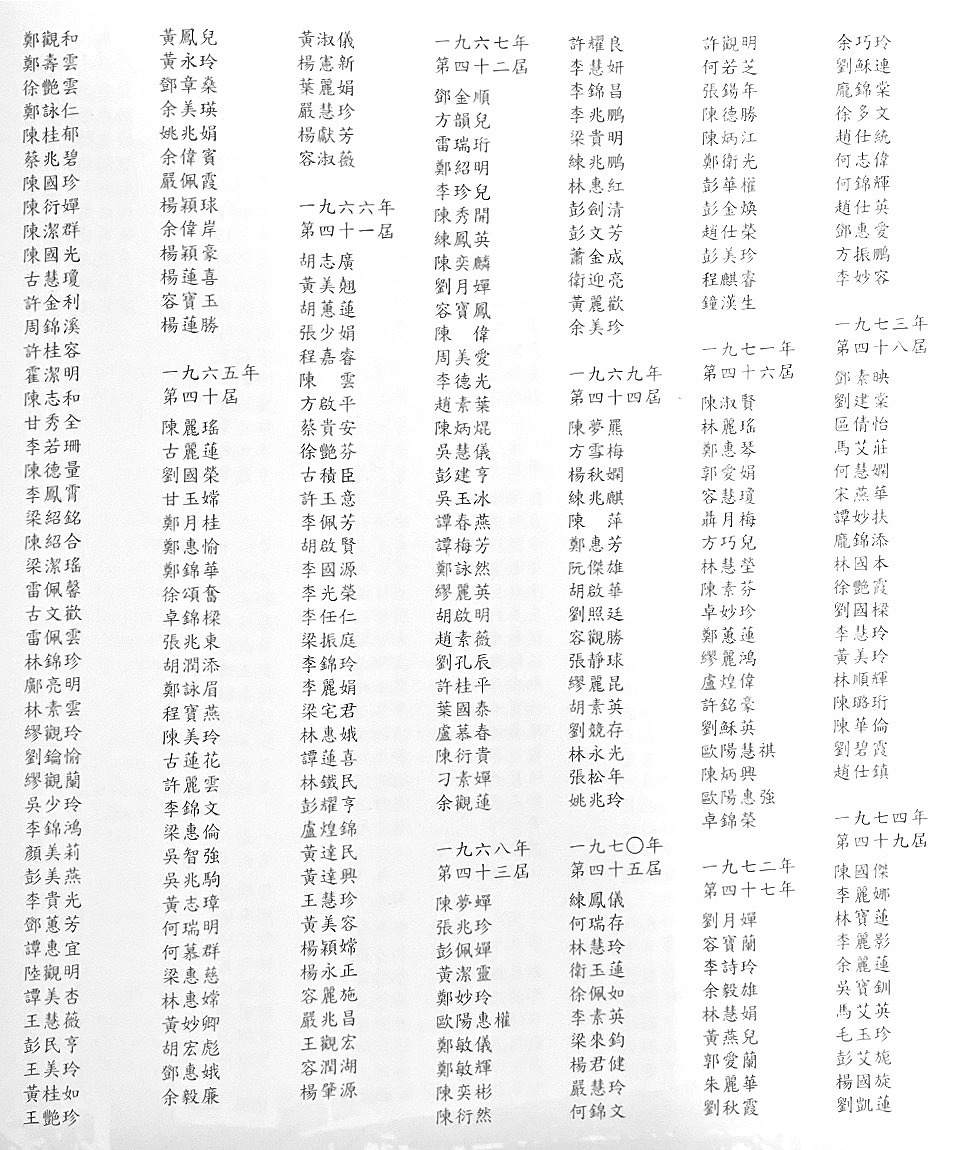 鄭觀和
鄭壽雲
徐艷雲
鄭詠仁
陳桂郁
蔡兆碧
陳國珍
陳衍嬋
陳潔群
陳國光
古慧瓊
許金利
周錦溪
許桂容
霍潔明
陳志和
甘秀全
李若珊
陳德量
李鳳霄
梁紹銘
陳紹合
梁潔瑤
雷佩馨
古文歡
雷佩雲
林錦珍
鄺亮明
林素雲
繆觀玲
劉鑰愉
繆觀蘭
吳少玲
李錦鴻
顏美莉
彭美燕
李貴光
鄧蕙芳
譚惠宜
陸觀明
譚美杏
王慧薇
彭民亨
王美玲
黃桂如
王艷珍
黃鳳兒
黃永玲
鄧章燊
余美瑛
姚兆娟
余偉賓
嚴佩霞
楊穎球
余偉岸
楊穎豪
楊蓮喜
容寶玉
楊蓮勝
一九六五年
第四十屆
陳麗瑤
古麗蓮
劉國榮
甘玉嫦
鄭月桂
鄭惠愉
鄭錦華
徐頌奮
卓錦樑
張兆東
胡潤添
鄭詠眉
程寶燕
陳美玲
古蓮花
許麗雲
李錦文
梁惠倫
吳智強
吳兆駒
黃志璋
何瑞明
何慕群
梁惠慈
林惠嫦
黃妙卿
胡宏彪
鄧惠娥
余毅廉
黃淑儀
楊憲新
葉麗娟
嚴慧珍
楊獻芳
容淑薇
一九六六年
第四十一屆
胡志廣
黃美翹
胡蕙蓮
張少娟
程嘉睿
陳　雲
方啟平
蔡貴安
徐艷芬
古積臣
許玉意
李佩芳
胡啟賢
李國源
李光榮
李任仁
梁振庭
李錦玲
李麗娟
梁宅君
林惠娥
譚蓮喜
林鐵民
彭耀亨
盧煌錦
黃達民
黃達興
王慧珍
黃美容
楊穎嫦
楊永正
容麗施
嚴兆昌
王觀宏
容潤湖
楊肇源
一九六七年
第四十二屆
鄧金順
方韻兒
雷瑞珩
鄭紹明
李珍兒
陳秀開
練鳳英
陳奕麟
劉月嬋
容寶鳳
陳　偉
周美愛
李德光
趙素葉
陳炳焜
吳慧儀
彭建亨
吳玉冰
譚春燕
譚梅芳
鄭詠然
繆麗英
胡啟明
趙素薇
劉孔辰
許桂平
葉國泰
盧慕春
陳衍貴
刁素嬋
余觀蓮
一九六八年
第四十三屆
陳夢蟬
張兆珍
彭佩嬋
黃潔靈
鄭妙玲
歐陽惠權
鄭敏儀
鄭敏輝
陳奕彬
陳衍然
許耀良
李慧妍
李錦昌
李兆鵬
梁貴明
練兆鵬
林惠紅
彭劍清
彭文芳
蕭金成
衛迎亮
黃麗歡
余美珍
一九六九年
第四十四屆
陳夢羆
方雪梅
楊秋嫻
練兆麒
陳　萍
鄭惠芳
阮傑雄
胡啟華
劉照廷
容觀勝
張靜球
繆麗昆
胡素英
劉競存
林永光
張松年
姚兆玲
一九七〇年
第四十五屆
練鳳儀
何瑞存
林慧玲
衛玉蓮
徐佩如
李素英
梁來鈞
楊君健
嚴慧玲
何錦文
許觀明
何若芝
張錫年
陳德勝
陳炳江
鄭衛光
彭華權
彭金煥
趙仕榮
彭美珍
程麒睿
鐘漢生
一九七一年
第四十六屆
陳淑賢
林麗瑤
鄭惠琴
郭愛娟
容慧瓊
聶月梅
方巧兒
林慧瑩
陳素芬
卓妙珍
鄭蕙蓮
繆麗鴻
盧煌偉
許銘豪
劉穌英
歐陽慧祺
陳炳興
歐陽惠強
卓錦榮
一九七二年
第四十七年
劉月嬋
容寶蘭
李詩玲
余毅雄
林慧娟
黃燕兒
郭愛蘭
朱麗華
劉秋霞
余巧玲
劉穌連
龐錦棠
徐多文
趙仕統
何志偉
何錦輝
趙仕英
鄧惠愛
方振鵬
李妙容
一九七三年
第四十八屆
鄧素映
劉建棠
區倩怡
馬艾莊
何慧嫻
宋燕華
譚妙扶
龐錦添
林國本
徐艷霞
劉國樑
李慧玲
黃美玲
林順輝
陳璐珩
陳華倫
劉碧霞
趙仕鎮
一九七四年
第四十九屆
陳國傑
李麗娜
林寶蓮
李麗影
余麗蓮
吳寶釧
馬艾英
毛玉珍
彭艾旎
楊國旋
劉凱蓮